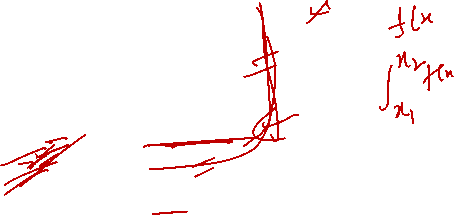 f(x
∫x₁x₂ f(x